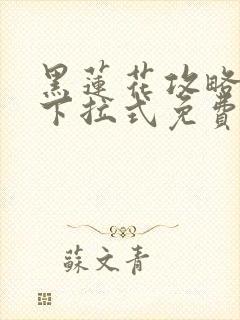 黑蓮花攻略
下拉式免費
蘇文青